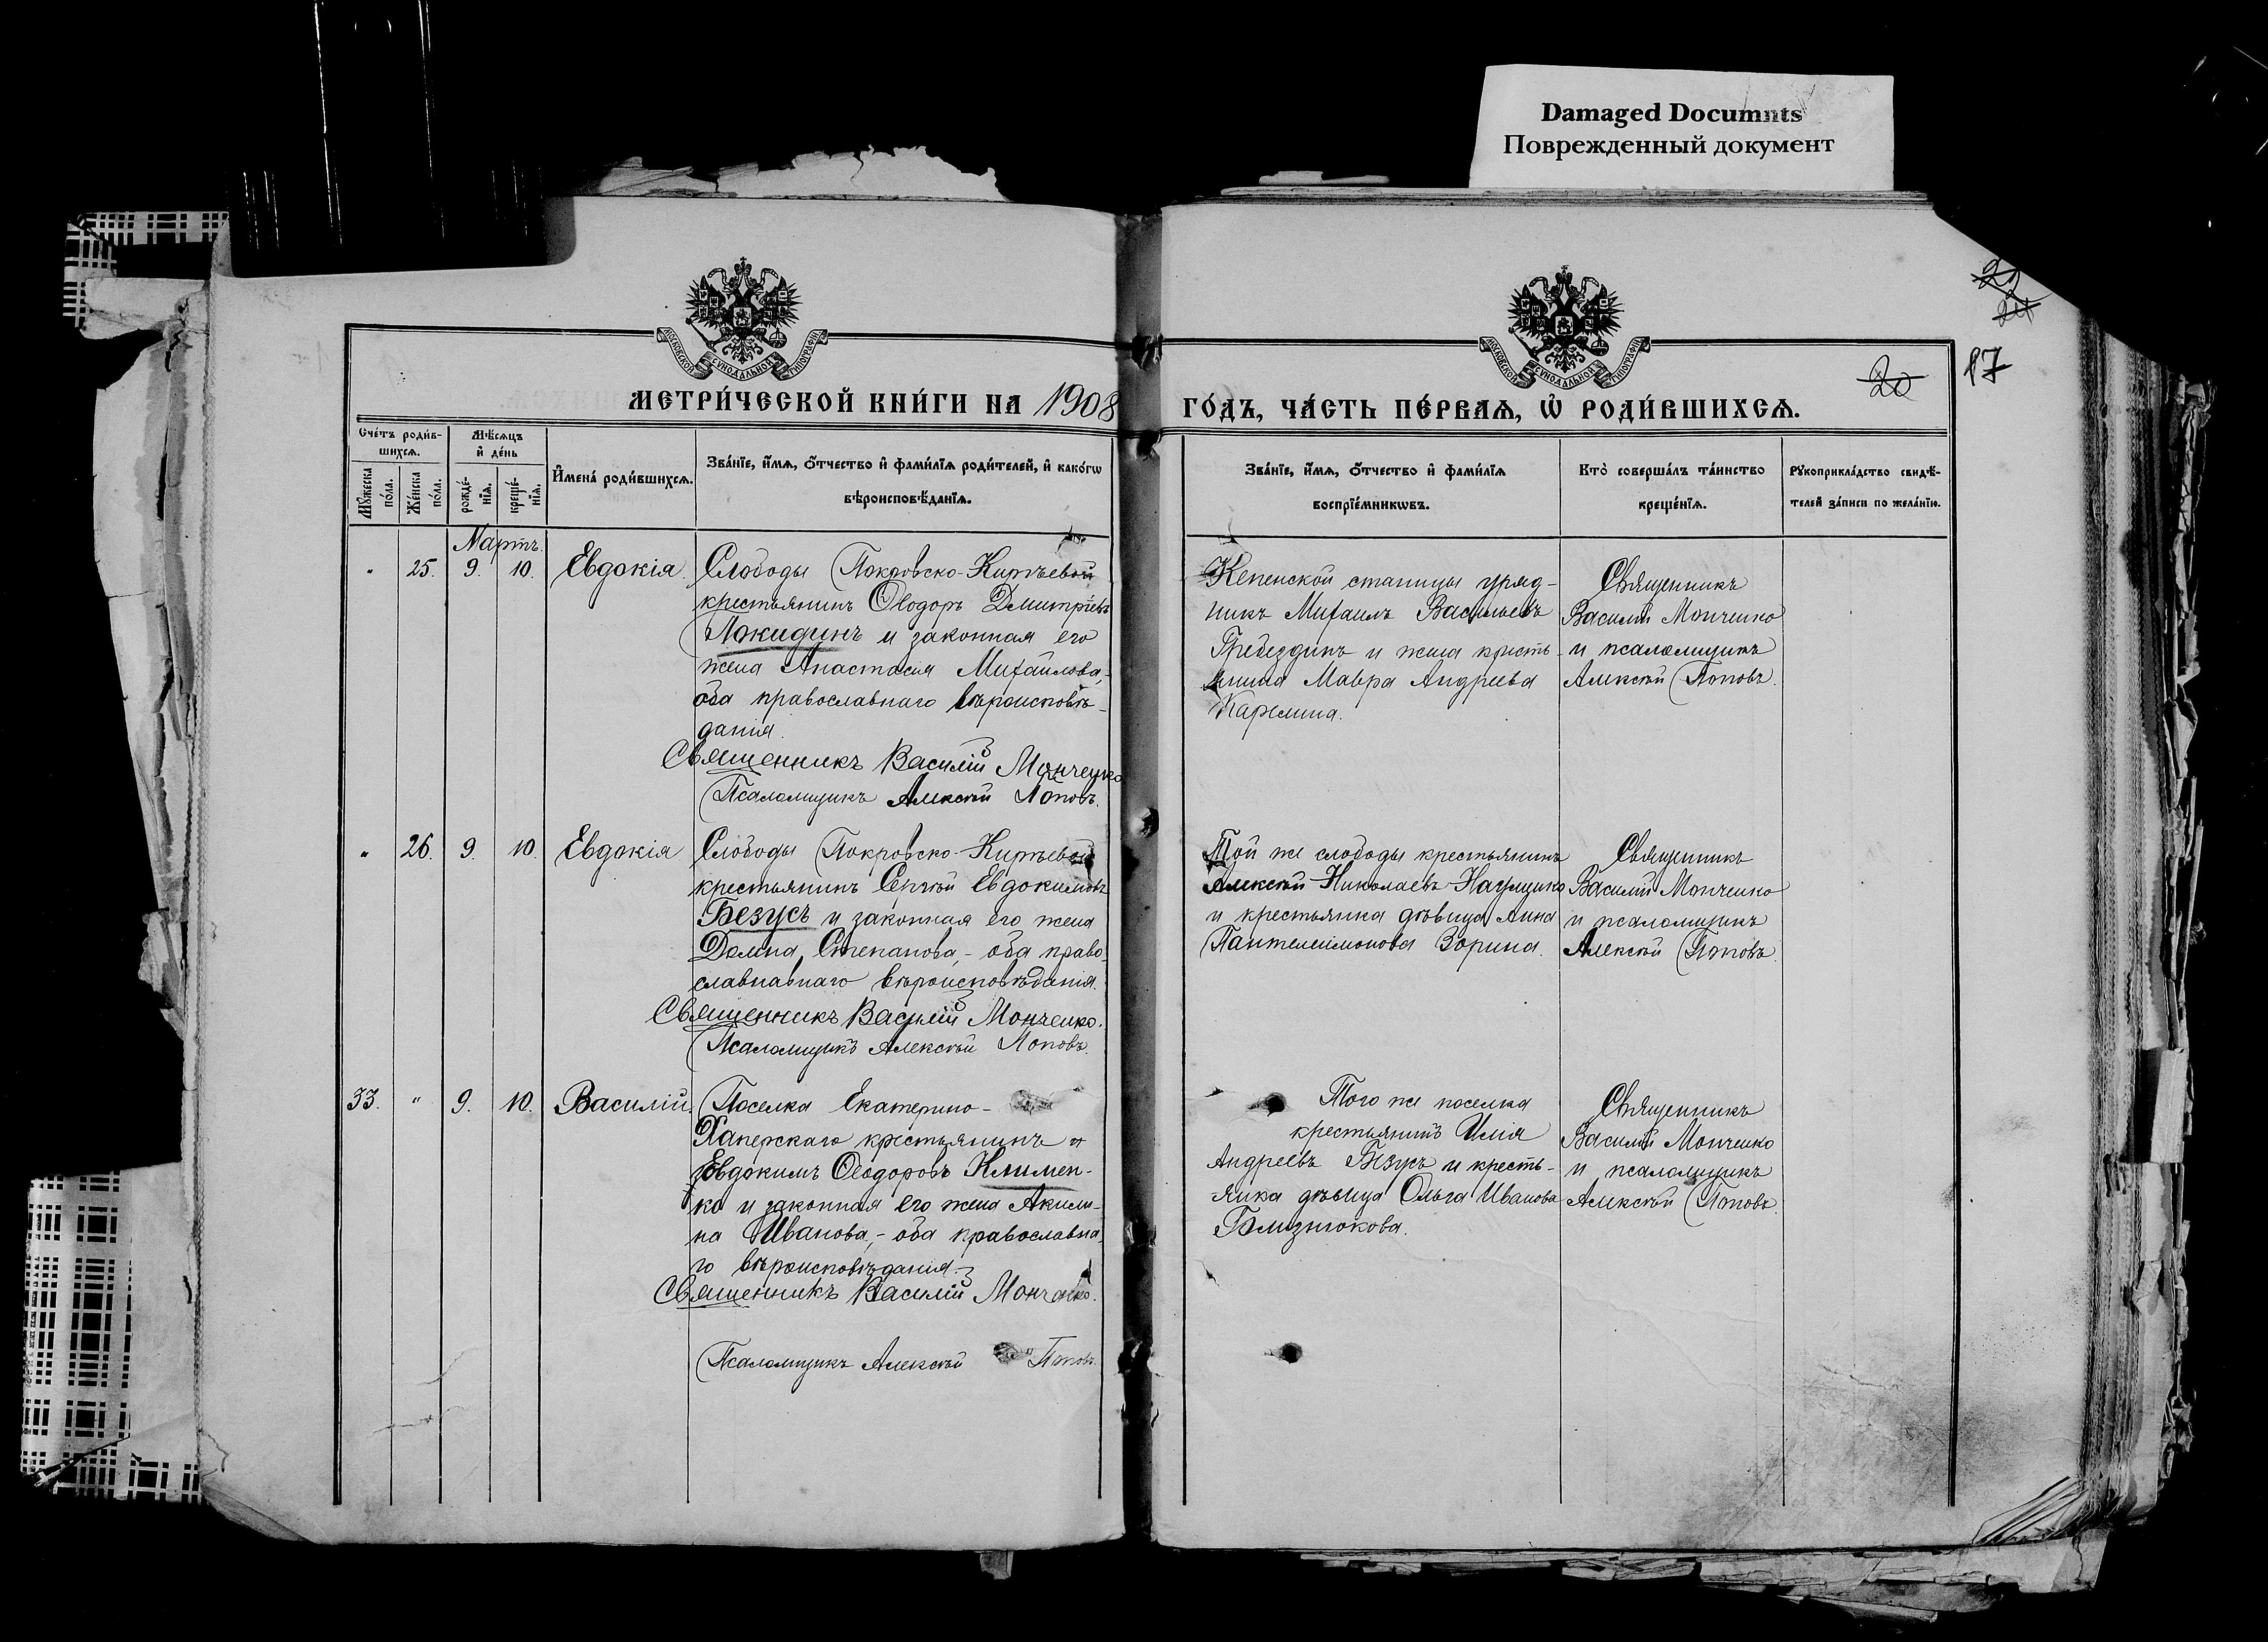 Damaged Documnts
Поврежденный документ
МОСКОВСКОЙ СѴНОДАЛЬНОЙ ТИПОГРАФІИ
МОСКОВСКОЙ СѴНОДАЛЬНОЙ ТИПОГРАФІИ
20
17
МЕТРИ́ЧЕСКОЙ КНИ́ГИ НА 1908
ГО́ДЪ, ЧА́СТЬ ПЕ́РВАѦ, Ѽ РОДИ́ВШИХСѦ.
Сче́тъ роди́в-
шихсѧ.
Мꙋжеска по́ла.
Же́нска по́ла.
Мѣ́сѧцъ
и҆ де́нь
рожде́-
нїѧ.
креще́-
нїѧ.
И҆мена̀ роди́вшихсѧ.
Зва́нїе, и҆́мѧ, ѻ҆́тчество и҆ фами́лїѧ роди́телей, и҆ како́гѡ
вѣроисповѣ́данїѧ.
Зва́нїе, и҆́мѧ, ѻ҆́тчество и҆ фами́лїѧ
воспрїе́мникѡвъ.
Кто̀ соверша́лъ та́инство
креще́нїѧ.
Рꙋкоприкла́дство свидѣ́-
телей за́писи по жела́нїю.
Мартъ.
" 25. 9. 10. Евдокія.
Слободы Покровско-Киръевой
крестьянинъ Ѳеодоръ Димитріевъ
Локидинъ и законная его
жена Анастасія Михайлова,-
оба православнаго вѣроисповѣ-
данія.
Священникъ Василій Монченко
Псаломщикъ Алексѣй Поповъ.
Кепенской станицы уряд-
никъ Михаилъ Васильевъ
Гребездинъ и жена кресть-
янина Мавра Андреева
Карелина.
Священникъ
Василій Монченко
и псаломщикъ
Алексѣй Поповъ.
" 26. 9. 10. Евдокія
Слободы Покровско-Киръевой
крестьянинъ Сергѣй Евдокимовъ
Безусъ и законная его жена
Домна Степанова,- оба право-
славнавнаго вѣроисповѣданія.
Священникъ Василій Монченко.
Псаломщикъ Алексѣй Поповъ.
Той же слободы крестьянинъ
Алексѣй Николаевъ
и крестьянка дѣвица Анна
Пантелеимонова Зорина.
Священникъ
Василій Монченко
и псаломщикъ
Алексѣй Поповъ.
33. " 9. 10. Василій.
Поселка Екатерино-
Хаперскаго крестьянинъ
Евдокимъ Ѳеодоровъ Климен-
ко и законная его жена Акили-
на Иванова,- оба православна-
го вѣроисповѣданія.
Священникъ Василій Монченко.
Псаломщикъ Алексѣй Поповъ.
Того же поселка
крестьянинъ Илія
Андреевъ Безусъ и кресть-
янка дѣвица Ольга Иванова
Близнюкова.
Священникъ
Василій Монченко
и псаломщикъ
Алексѣй Поповъ.